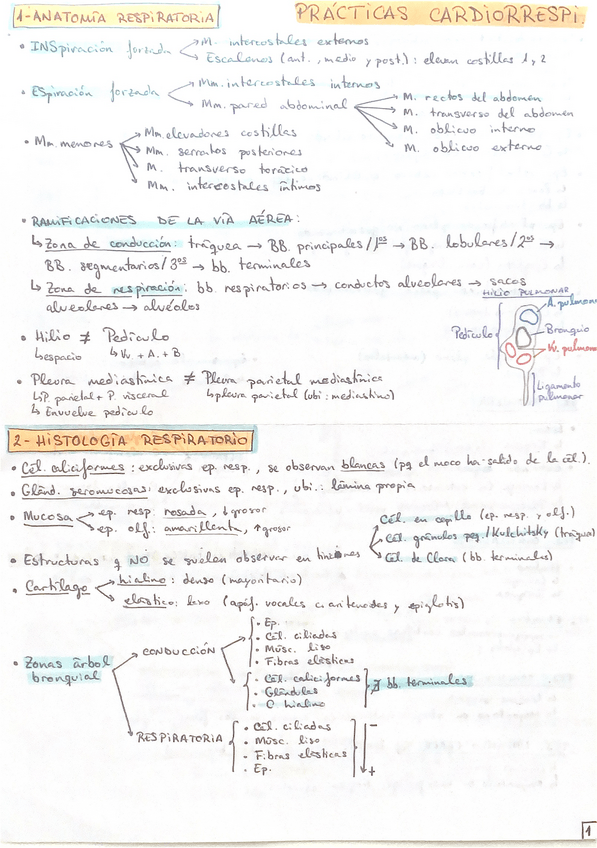 PRÁCTICAS CARDIORRESPI.
1-ANATOMÍA RESPIRATORIA
• INSpiración forzada
M. intercostales externos
Escalenos (ant., medio y post.): elevan costillas 1, 2
• ESpiración forzada
Mm. intercostales internos
Mm. pared abdominal
M. rectos del abdomen
M. transverso del abdomen
M. oblicuo interno
M. oblicuo externo
• Mm. menores
Mm. elevadores costillas
Mm. serratos posteriores
M. transverso torácico
Mm. intercostales íntimos
• RAMIFICACIONES DE LA VÍA AÉREA:
↳ Zona de conducción: tráquea → BB. principales/1os → BB. lobulares/2os →
BB. segmentarios/3os → bb. terminales
↳ Zona de respiración: bb. respiratorios → conductos alveolares → sacos
alveolares → alvéolos
• Hilio ≠ Pedículo
↳espacio ↳ Vv. + A. + B
• Pleura mediastínica ≠ Pleura parietal mediastínica
↳P. parietal + P. visceral ↳pleura parietal (ubi: mediastino)
↳ Envuelve pedículo
HILIO PULMONAR
A. pulmonar
Pedículo
Bronquio
Vv. pulmon
Ligamento
pulmonar
2-HISTOLOGÍA RESPIRATORIO
• Cél. caliciformes: exclusivas ep. resp., se observan blancas (pq el moco ha salido de la cél.).
• Glánd. seromucosas: exclusivas ep. resp., ubi.: lámina propia
• Mucosa
ep. resp. rosada, ↓grosor
ep. olf: amarillenta, ↑grosor
• Estructuras q NO se suelen observar en tinciones
Cél. en cepillo (ep. resp. y olf.)
Cél. gránulos peq./Kulchitsky (tráquea)
Cél. de Clara (bb. terminales)
• Cartílago
hialino: denso (mayoritario)
elástico: laxo (apóf. vocales c. aritenoides y epiglotis)
• Zonas árbol
bronquial
CONDUCCIÓN
• Ep.
• Cél. ciliadas
• Músc. liso
• Fibras elásticas
• Cél. caliciformes
• Glándulas
• C hialino
∄ bb. terminales
RESPIRATORIA
• Cél. ciliadas
• Músc. liso
• Fibras elásticas
• Ep.
-
+
1